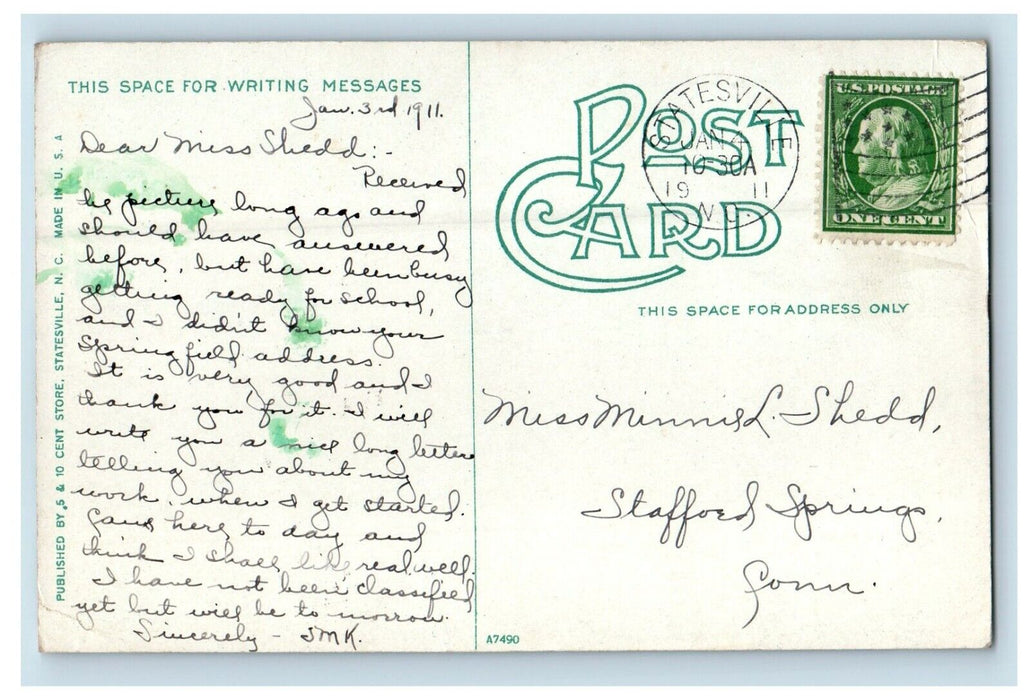 THIS SPACE FOR WRITING MESSAGES
Jan. 3rd 1911.
Dear Miss Shedd:-
Received
he picture long ago and
should have answered
before, but have been busy
getting ready for school,
and I didn't know your
Springfield address.
It is very good and I
thank you for it. I will
write you a nice long letter
telling you about my
work when I get started.
Came here to day and
think I shall like real well.
I have not been classified
yet but will be to morrow.
Sincerely - JMK.
PUBLISHED BY 5 & 10 CENT STORE, STATESVILLE, N. C. MADE IN U. S. A
POST
CARD
STATESVILLE
JAN 4
10-30A
19 11
N.C.
U.S. POSTAGE
ONE CENT
THIS SPACE FOR ADDRESS ONLY
Miss Minnie L. Shedd,
Stafford Springs,
Conn.
A7490